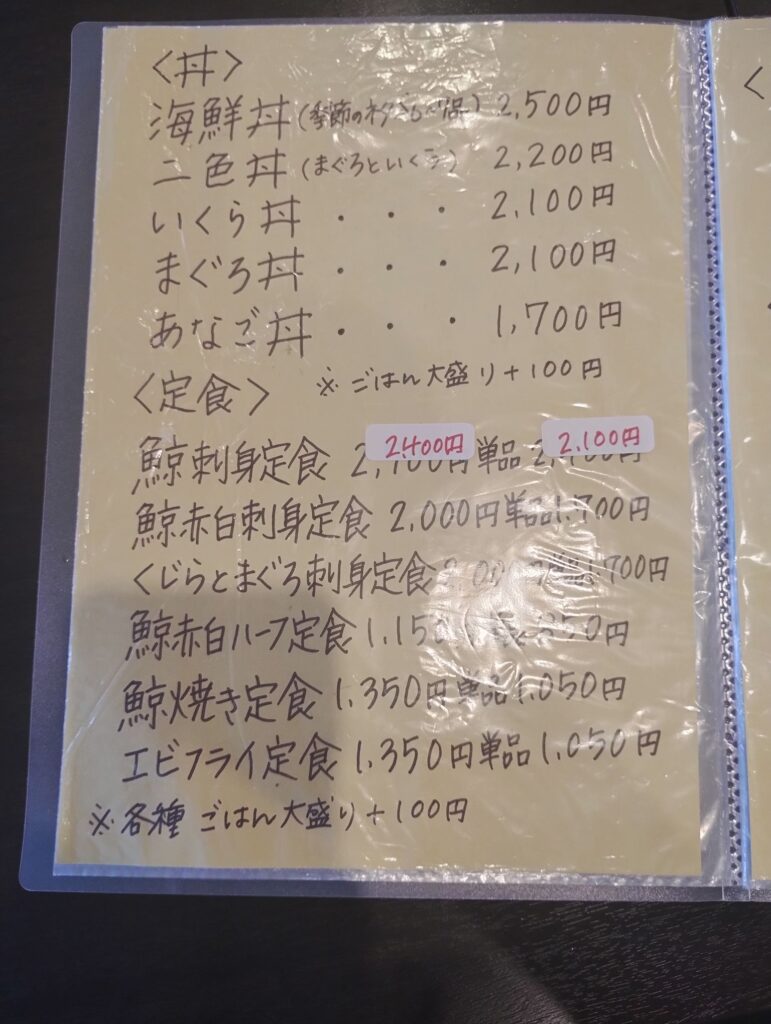 〈丼〉
海鮮丼(季節のネタ) 2,500円
二色丼(まぐろといくら) 2,200円
いくら丼 ・ ・ ・ 2,100円
まぐろ丼 ・ ・ ・ 2,100円
あなご丼 ・ ・ ・ 1,700円
〈定食〉 ※ ごはん大盛り+100円
鯨刺身定食 2,400円 単品 2,100円
鯨赤白刺身定食 2,000円 単品1,700円
くじらとまぐろ刺身定食 単品1,700円
鯨赤白ハーフ定食 1,150 850円
鯨焼き定食 1,350円 単品1,050円
エビフライ定食 1,350円 単品1,050円
※各種 ごはん大盛り+100円
〈